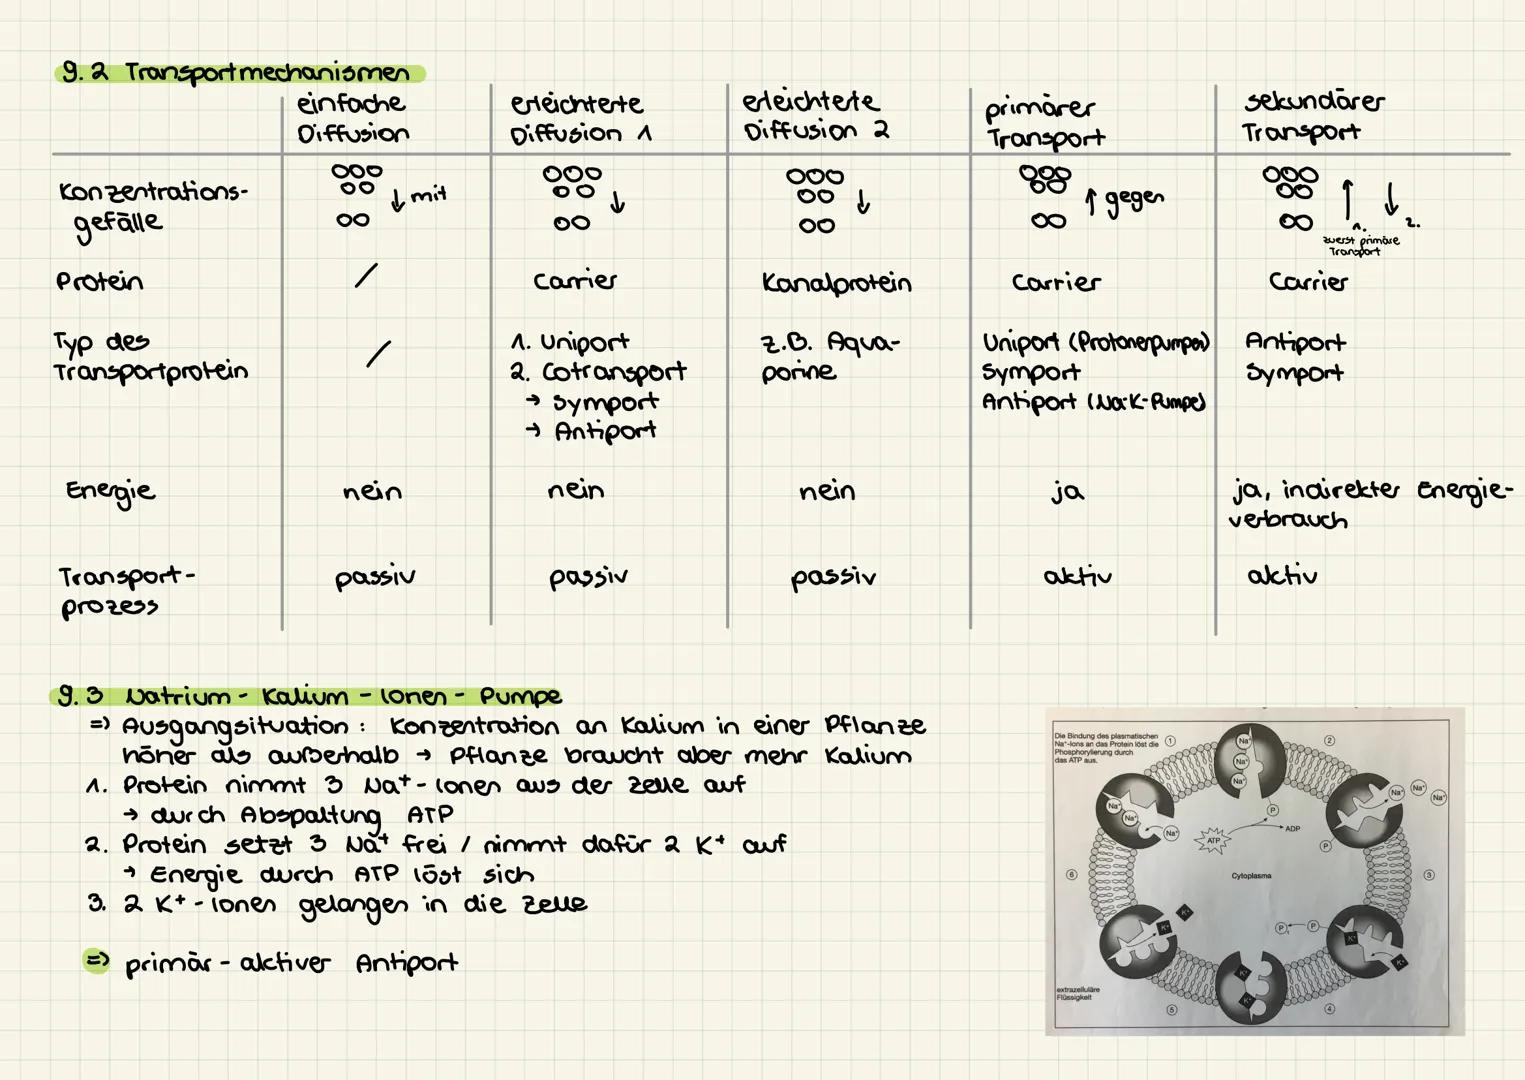 9.2 Transportmechanismen
einfache Diffusion
erleichterte Diffusion 1
erleichterte Diffusion 2
primärer Transport
sekundärer Transport
Konzentrations-
gefälle
↓ mit
↓
↓
↑ gegen
↑ ↓
1. 2.
zuerst primäre
Transport
Protein
/
Carrier
Kanalprotein
Carrier
Carrier
Typ des
Transportprotein
/
1. Uniport
2. Cotransport
→ Symport
→ Antiport
z.B. Aqua-
porine
Uniport (Protonenpumpen)
Symport
Antiport (Na-K-Pumpe)
Antiport
Symport
Energie
nein
nein
nein
ja
ja, indirekter Energie-
verbrauch
Transport-
prozess
passiv
passiv
passiv
aktiv
aktiv
9.3 Natrium-Kalium-Ionen-Pumpe
=> Ausgangsituation: Konzentration an Kalium in einer Pflanze
höher als außerhalb → Pflanze braucht aber mehr Kalium
1. Protein nimmt 3 Na+-Ionen aus der Zelle auf
→ durch Abspaltung ATP
2. Protein setzt 3 Na+ frei / nimmt dafür 2 K+ auf
→ Energie durch ATP löst sich
3. 2 K+-Ionen gelangen in die Zelle
=> primär-aktiver Antiport
Die Bindung des plasmatischen
Na+-Ions an das Protein löst die
Phosphorylierung durch
das ATP aus.
1
2
3
4
5
6
Na+
Na+
Na+
Na+
Na+
Na+
Na+
Na+
Na+
P
ATP
ADP
P
Cytoplasma
P
P
K+
K+
K+
K+
K+
K+
extrazelluläre
Flüssigkeit